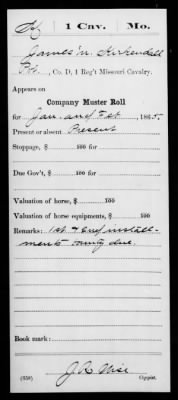 K | 1 Cav. | Mo.
James M. Kirkendall
Pvt., Co. D, 1 Reg't Missouri Cavalry.
Appears on
Company Muster Roll
for Jan. and Feb., 1865.
Present or absent Present
Stoppage, $ 100 for
Due Gov't, $ 100 for
Valuation of horse, $ 100
Valuation of horse equipments, $ 100
Remarks: 1st & 2nd install-
ments bounty due.
Book mark:
(858)
Copyist.